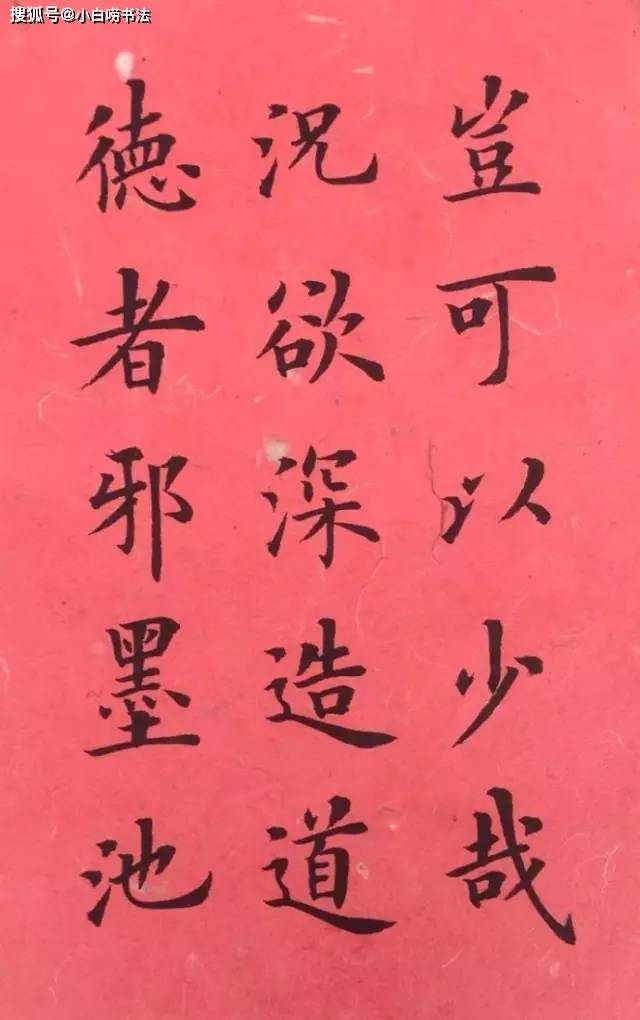 搜狐号@小白唠书法
豈可以少哉
况欲深造道
德者邪墨池